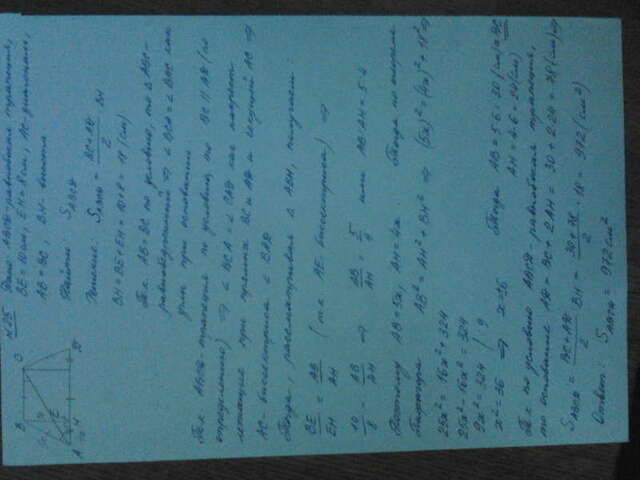 №25
Дано: ABCD-равнобокая трапеция,
BE=10см, EH=8см, AC-диагональ,
AB=BC, BH-высота
Найти: S ABCD
Решение: S ABCD = BC+AD/2 · BH
BH=BE+EH=10+8=18 (см)
Т.к. AB=BC по условию, то △ABC-
равнобедренный ⇒ ∠BCA=∠BAC как
углы при основании
Т.к. ABCD-трапеция по условию, то BC||AD (по
определению) ⇒ ∠BCA=∠CAD как накрест
лежащие при прямых BC и AD и секущей AC ⇒
AC-биссектриса ∠BAD
Тогда, рассматривая △ABH, получаем:
BE/EH = AB/AH (т.к. AE-биссектриса) ⇒
10/8 = AB/AH ⇒ AB/AH = 5/4 или AB:AH=5:4
Поэтому AB=5x, AH=4x. Тогда по теореме
Пифагора AB²=AH²+BH² ⇒ (5x)²=(4x)²+18² ⇒
25x²=16x²+324
25x²-16x²=324
9x²=324 | 9
x²=36 ⇒ x=6
Тогда AB=5·6=30(см)=BC
AH=4·6=24(см)
Т.к. по условию ABCD-равнобокая трапеция,
то основание AD=BC+2AH=30+2·24=78(см) ⇒
S ABCD = BC+AD/2 · BH = 30+78/2 · 18 = 972 (см²)
Ответ: S ABCD = 972см²
B C
A H D
E